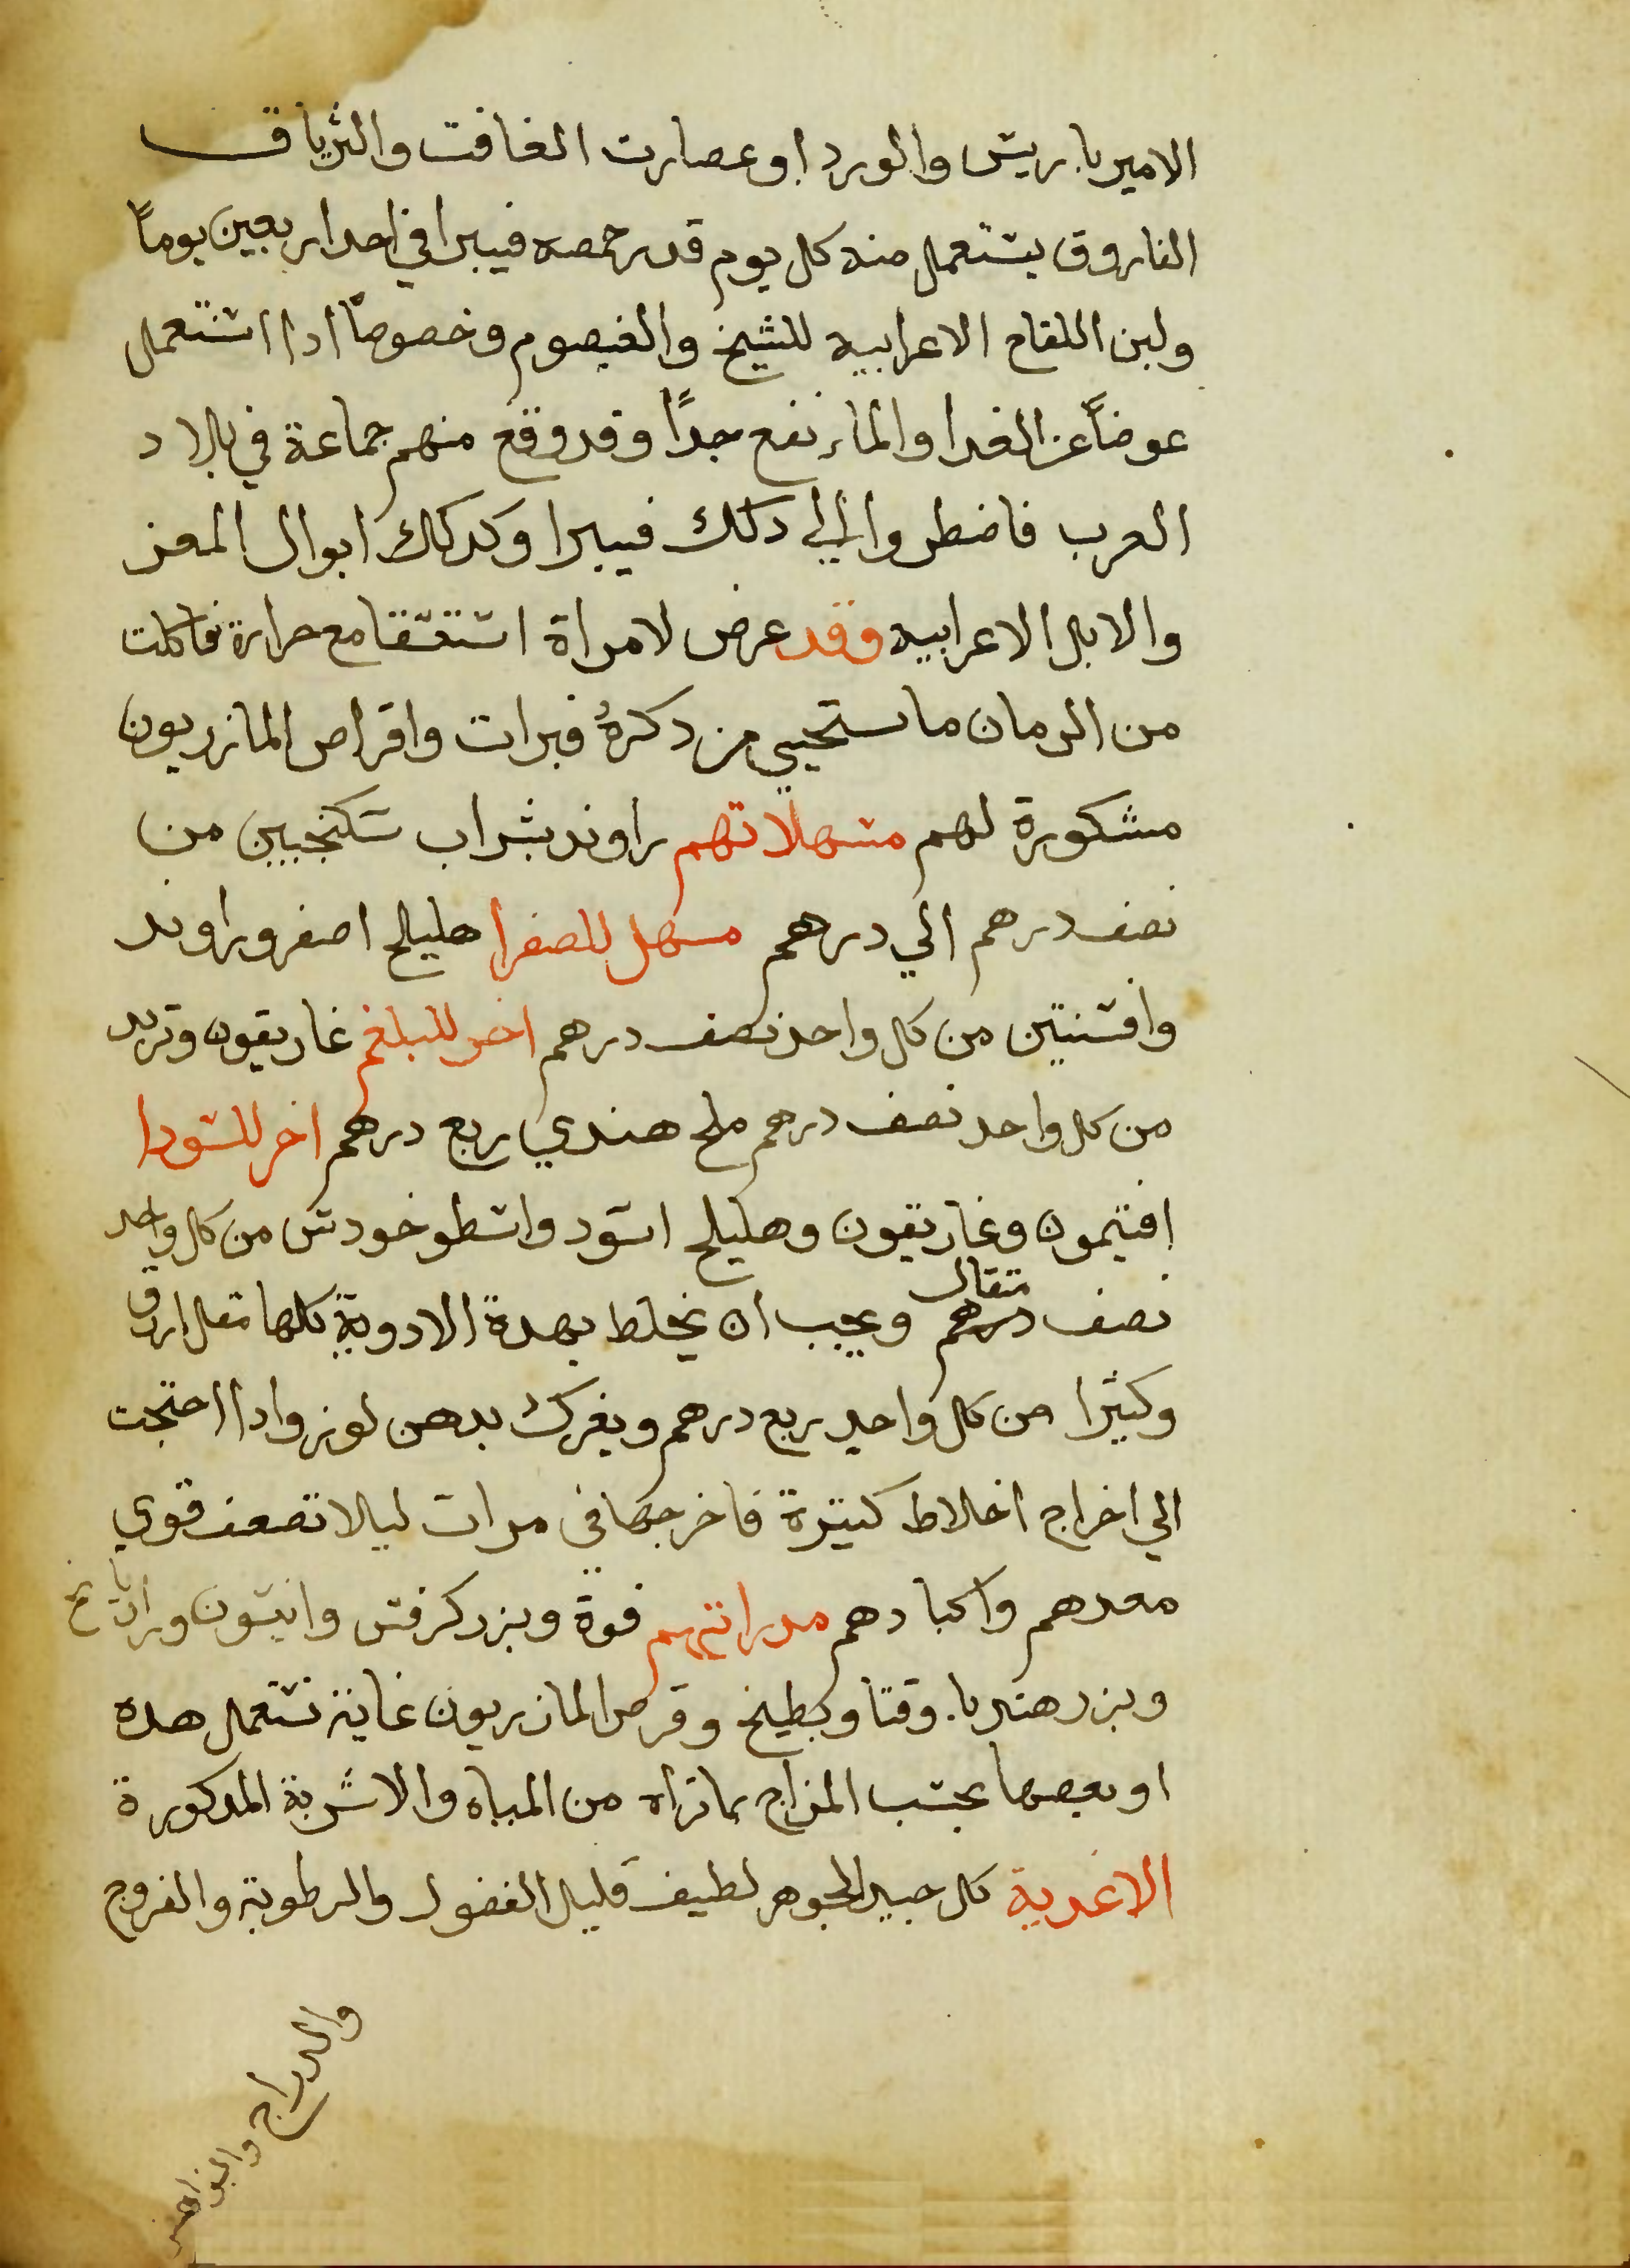 الاميرباريس والورد او عصارت الغافت والترياق
الفاروق يستعمل منه كل يوم قدر حمصه فيبرا في احدا ربعين يوماً
ولبن اللقاح الاعرابيه للشيخ والقيصوم وخصوصاً ادا استعمل
عوضاً عن الغدا والماء نفع جداً وقد وقع منهم جماعة في بلاد
العرب فاضطروا الي دلك فيبرا وكدلك ابوال المعز
والابل الاعرابيه وقد عرض لامراة استسقا مع حرارة فاكلت
من الرمان ما يستحيي من دكرهُ فبرات واقراص المازريون
مشكورة لهم مسهلاتهم راوند بشراب سكنجبين من
نصف درهم الي درهم مسهل للصفرا هليلج اصفر وراوند
وافسنتين من كل واحد نصف درهم اخر للبلغم غاريقون وتربد
من كل واحد نصف درهم ملح هندي ربع درهم اخر للسودا
افتيمون وغاريقون وهليلج اسود واسطوخودس من كل واحد
نصف درهم متقال ويجب ان يخلط بهدة الادوية كلها مقل ازرق
وكثيرا من كل واحد ربع درهم ويفرك بدهن لوز وادا احتجت
الي اخراج اخلاط كتيرة فاخرجها في مرات ليلا تضعف قوي
معدهم واكبادهم مدراتهم فوة وبزر كرفس وانيسون ورازيانخ
وبزر هندبا وقتا وبطيخ وقرص المازريون غاية تستعمل هده
او بعضها بحسب المزاج بما تراه من المياه والاشربة المدكورة
الاغدية كل جيد الجوهر لطيف قليل الفضول والرطوبة والفروج
والدراج والنواهض